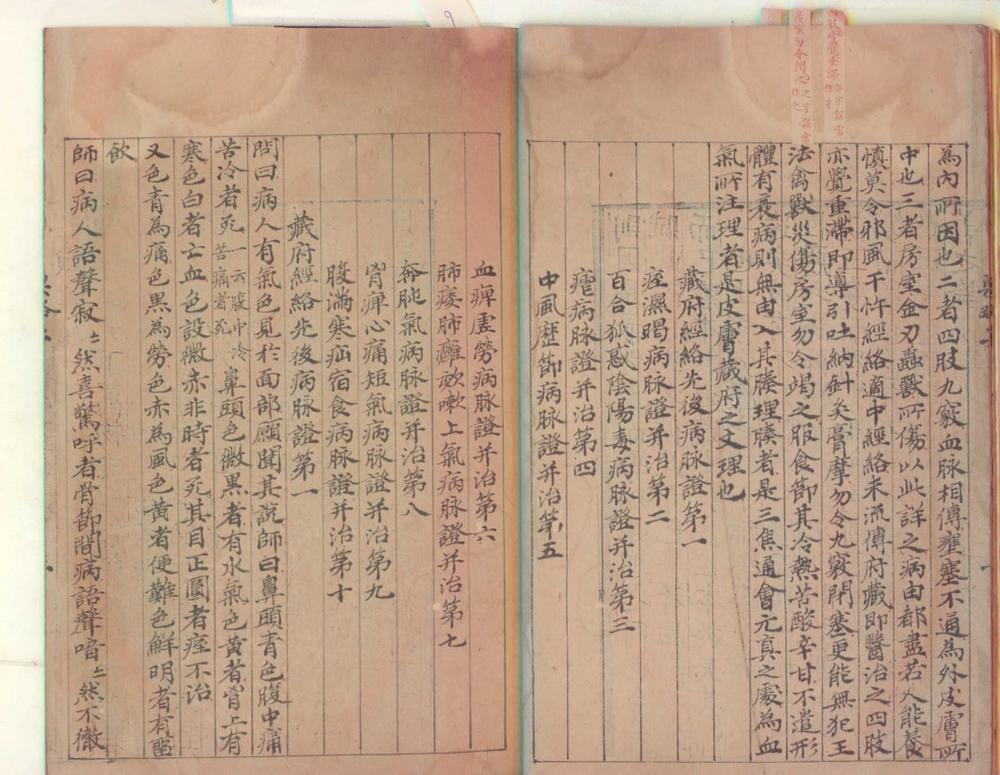 為內所因也二者四肢九竅血脉相傳壅塞不通為外皮膚所
中也三者房室金刃蟲獸所傷以此詳之病由都盡若人能養
慎莫令邪風干忤經絡適中經絡未流傳府藏即醫治之四肢
亦覺重滯即導引吐納針灸膏摩勿令九竅閉塞更能無犯王
法禽獸災傷房室勿令竭之服食節其冷熱苦酸辛甘不遣形
體有衰病則無由入其腠理腠者是三焦通會元真之處為血
氣所注理者是皮膚藏府之文理也
藏府經絡先後病脉證第一
痓濕暍病脉證并治第二
百合狐惑陰陽毒病脉證并治第三
瘧病脉證并治第四
中風歷節病脉證并治第五
血痺虛勞病脉證并治第六
肺痿肺癰欬嗽上氣病脉證并治第七
奔豘氣病脉證并治第八
胷痺心痛短氣病脉證并治第九
腹滿寒疝宿食病脉證并治第十
藏府經絡先後病脉證第一
問曰病人有氣色見於面部願聞其說師曰鼻頭青色腹中痛
苦冷者死一云腹中冷苦痛者死鼻頭色微黑者有水氣色黃者胷上有
寒色白者亡血色設微赤非時者死其目正圓者痓不治
又色青為痛色黑為勞色赤為風色黃者便難色鮮明者有留
飲
師曰病人語聲寂〻然喜驚呼者骨節間病語聲喑〻然不徹